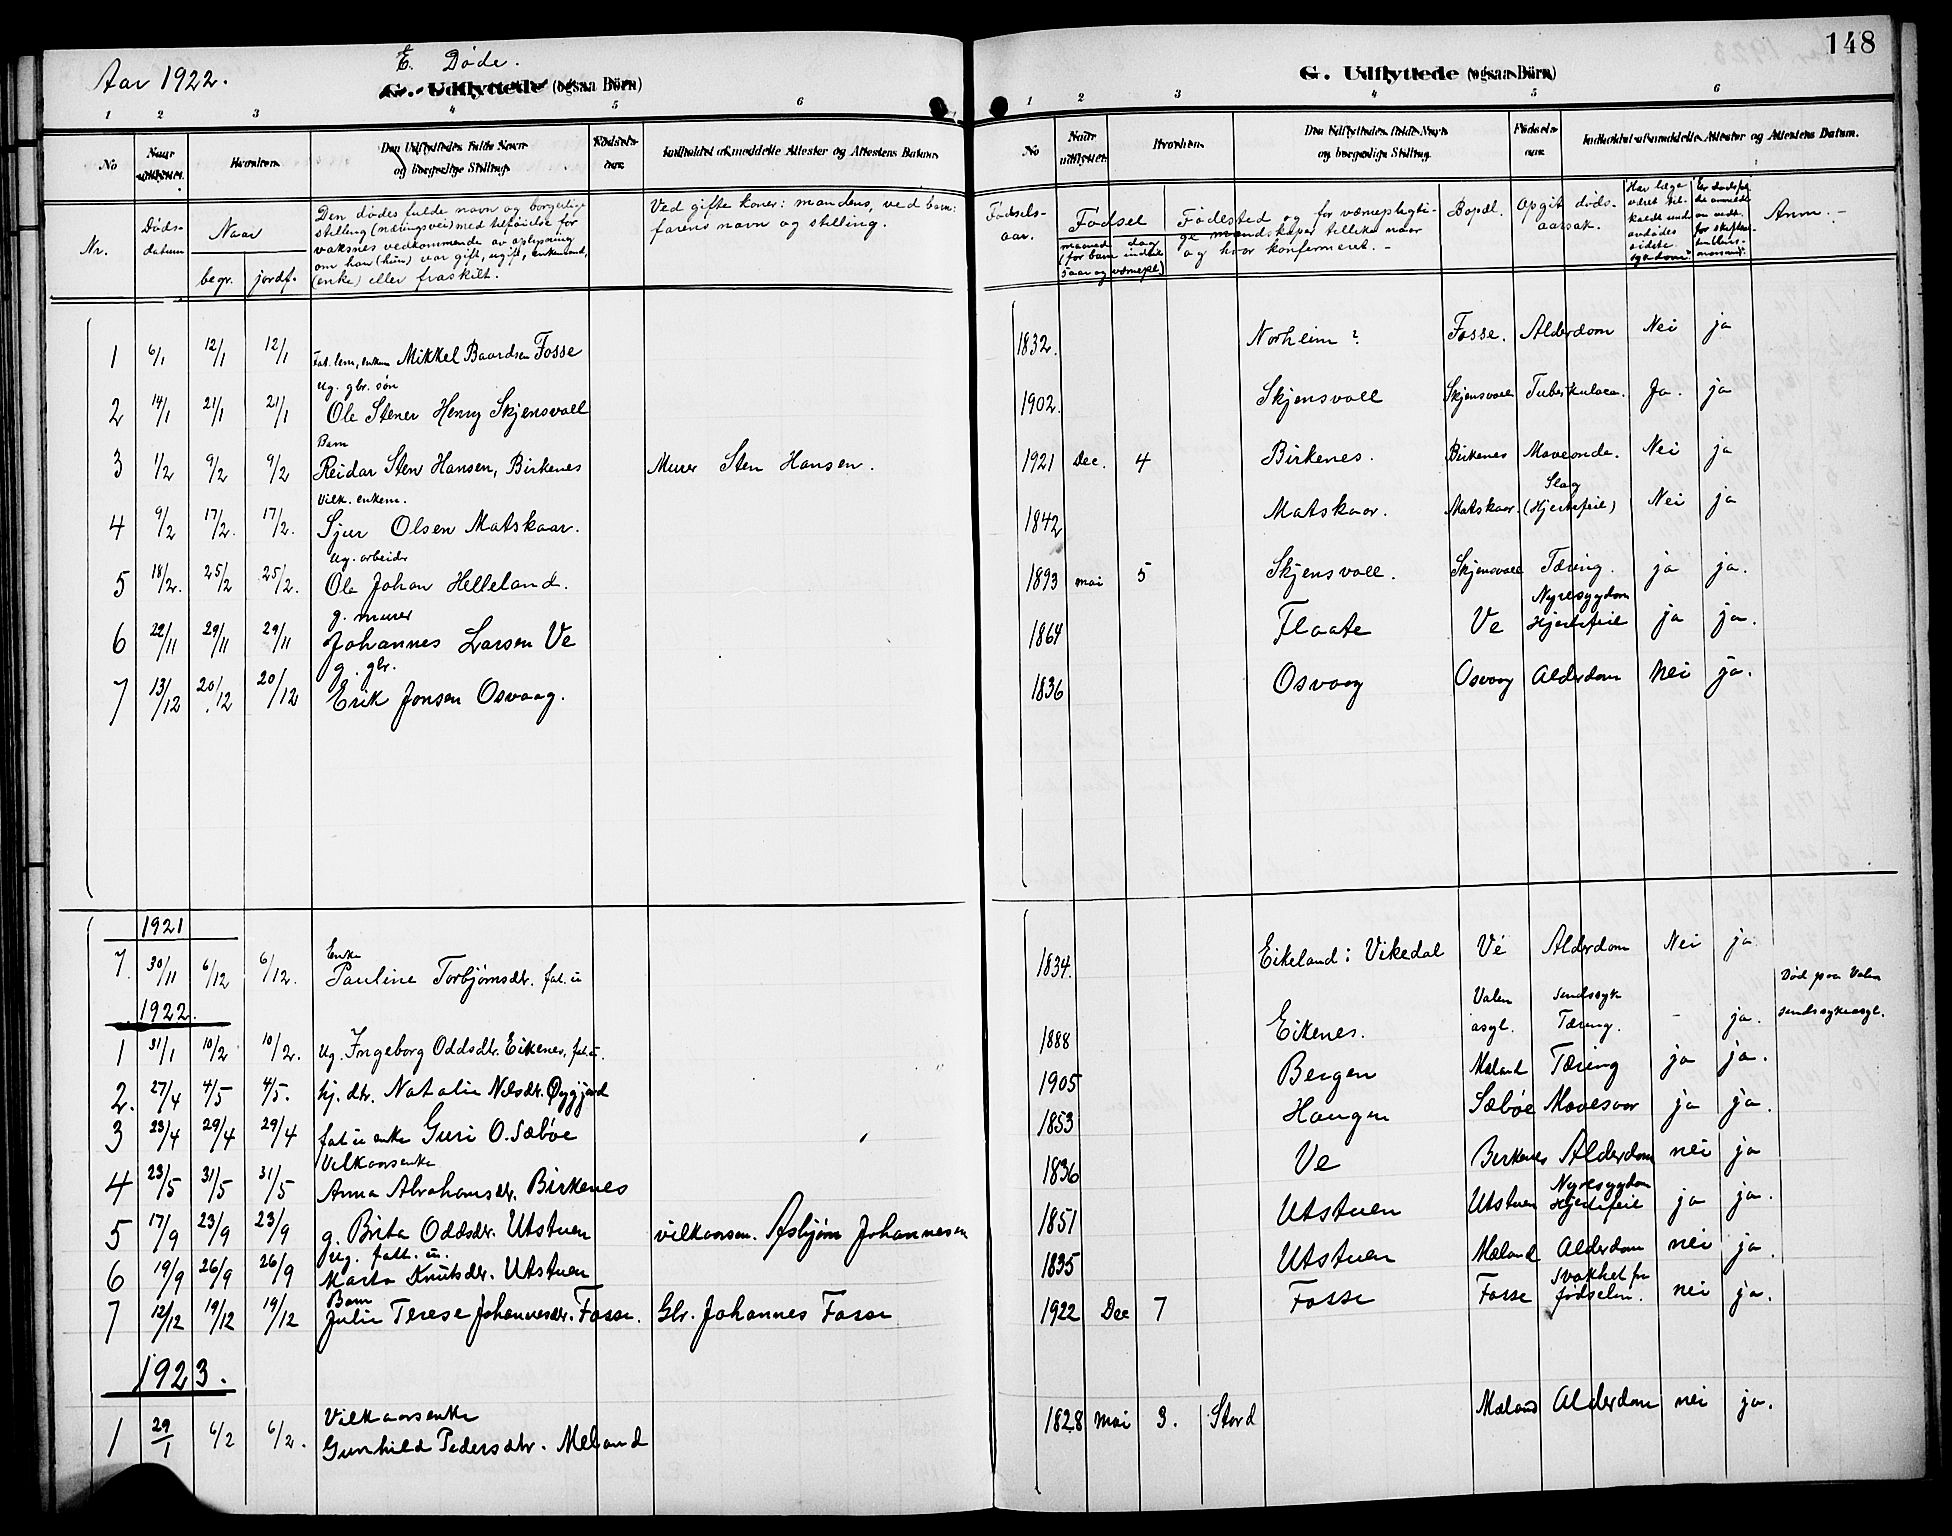 148
Aar 1922.
E. Døde.
G. Udflyttede (ogsaa Börn)
G. Udflyttede (ogsaa Börn)
1 2 3 4 5 6
1 2 3 4 5 6
No Naar udflyttet. Hvorhen. Den Udflyttedes fulde Navn og borgerlige Stilling. Födsels-aar. Indholdet af meddelte Attester og Attestens Datum.
No Naar udflyttet. Hvorhen. Den Udflyttedes fulde Navn og borgerlige Stilling. Födsels-aar. Indholdet af meddelte Attester og Attestens Datum.
Nr. Døds-datum Naar begr. jordf. Den dødes fulde navn og borgerlige stilling (næringsvei) med tilføielse for voksnes vedkommende av oplysning om han (hun) var gift, ugift, enkemand, (enke) eller fraskilt. Ved gifte koner: mandens, ved barn: farens navn og stilling.
Fødsels-aar. Fødsel maaned dag (for barn indtil 5 aar og værnepl.) Fødested og for værnepligtige mandskaper tillike naar og hvor konfirmeret. - Bopæl. Opgit døds-aarsak. Har læge været tilkaldt under avdødes sidste sygdom. Er dødsfaldet anmeldt Anm. -
1 6/1 12/1 12/1 Fat. lem, enkem. Mikkel Baardsen Fosse 1832. Norheim? Fosse. Alderdom Nei ja
Ug. gbr. søn
2 14/1 21/1 21/1 Ole Stener Henry Skjensvoll 1902. Skjensvoll Skjensvoll Tuberkulose. Ja. ja
Barn
3 1/2 9/2 9/2 Reidar Sten Hansen, Birkenes Murer Sten Hansen. 1921 Dec. 4 Birkenes. Birkenes Maveonde. Nei ja
Vilk. enkem.
4 9/2 17/2. 17/2. Sjur Olsen Matskaar. 1842 Matskaar. Matskaar. Slag (Hjertefeil) Nei ja
Ug. arbeider
5 18/2. 25/2 25/2. Ole Johan Helleland. 1893 mai 5 Skjensvoll. Skjensvoll Tæring. ja ja.
g. murer
6 22/11 29/11 29/11 Johannes Larsen Ve 1864 Flaate Ve Nyresygdom Hjertefeil ja ja.
g. gbr.
7 13/12 20/12 20/12 Erik Jonsen Osvaag. 1836 Osvaag Osvaag Alderdom nei ja.
1921
Enke
7. 30/11 6/12 6/12. Pauline Torbjørnsdtr. fat. u. 1834. Eikeland i Vikedal Ve Alderdom Nei ja
1922.
1 31/1 10/2 10/2. Ug. Ingeborg Oddsdtr. Eikenes, fat. u. 1888 Eikenes. Valen asyl. Sindssyk Tæring. - ja. Død paa Valen sindssykeasyl.
2. 27/4 4/5 4/5. hj. dtr. Natalie Nilsdtr. Øygjard 1905 Bergen Mæland Tæring ja ja.
3 23/4 29/4 29/4 fat. u. enke Guri O. Sæbøe 1853 Haugen Sæbøe Mavesaar ja ja.
Vilkaarsenke
4 23/5 31/5 31/5 Anna Abrahamsdtr. Birkenes 1836 Ve Birkenes Alderdom nei ja
5 17/9 23/9 23/9 g. Brita Oddsdtr. Utstuen vilkaarsm. Asbjørn Johannesen 1851 Utstuen Utstuen Nyresygdom Hjertefeil ja ja.
Ug. fatt. u.
6 19/9 26/9 26/9 Marta Knutsdtr. Utstuen 1835 Utstuen Mæland Alderdom nei ja.
Barn
7 12/12 19/12 19/12 Julie Terese Johannesdtr. Fosse. Gbr. Johannes Fosse 1922 Dec 7 Fosse Fosse Svakhet fra fødselen. nei ja.
1923.
Vilkaarsenke
1 29/1 6/2 6/2. Gunhild Pedersdtr. Meland 1828 mai 3. Stord Mæland Alderdom nei ja.